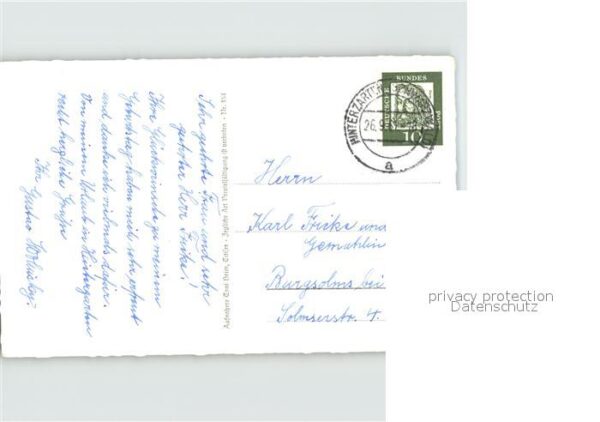 Sehr geehrte Frau und sehr
geehrter Herr Fricke!
Ihre Glückwünsche zu meinem
Geburtstag haben mich sehr erfreut
und danke ich vielmals dafür.
Von meinem Urlaub in Hinterzarten
recht herzliche Grüße
Ihr Gustav
Nr. 154
HINTERZARTEN
26.9.
a
DEUTSCHE
BUNDES
POST
10
Herrn
Karl Fricke und
Gemahlin
Burgsolms bei
Solmserstr. 4.
privacy protection
Datenschutz